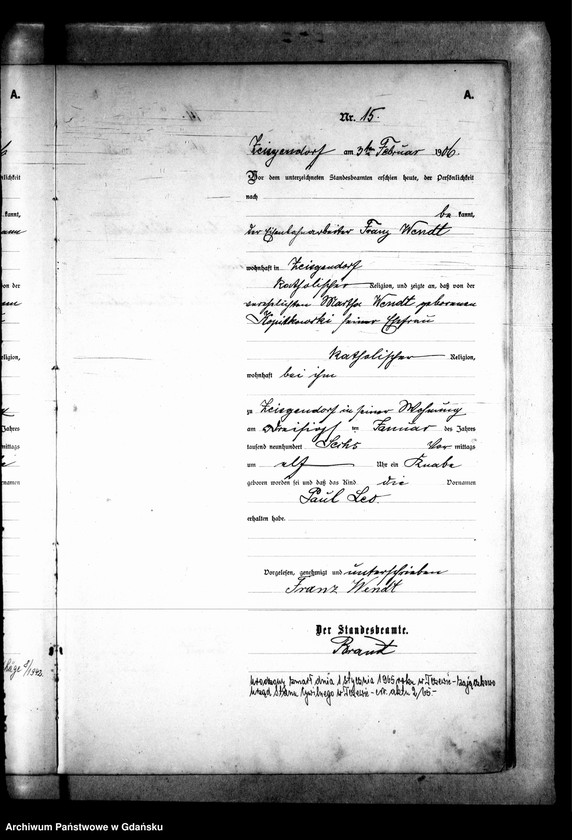 A.
A.
Nr. 15.
Zeisgendorf am 3ten Februar 1906.
Vor dem unterzeichneten Standesbeamten erschien heute, der Persönlichkeit
nach
be kannt,
der Eisenbahnarbeiter Franz Wendt
wohnhaft in Zeisgendorf
katholischer Religion, und zeigte an, daß von der
verehelichten Martha Wendt geborenen
Kopittkowski seiner Ehefrau
katholischer Religion,
wohnhaft bei ihm
zu Zeisgendorf in seiner Wohnung
am dreißigsten Januar des Jahres
tausend neunhundert sechs Vor mittags
um elf Uhr ein Knabe
geboren worden sei und daß das Kind die Vornamen
Paul Leo
erhalten habe.
Vorgelesen, genehmigt und unterschrieben
Franz Wendt
Der Standesbeamte.
Brandt
zmarł dnia 1 stycznia 1965 roku w Tczewie-
Urząd Stanu Cywilnego w Tczewie - nr. aktu 2/65-
nlichkeit
kannt,
on der
eligion,
Jahres
mittags
ornamen
Archiwum Państwowe w Gdańsku